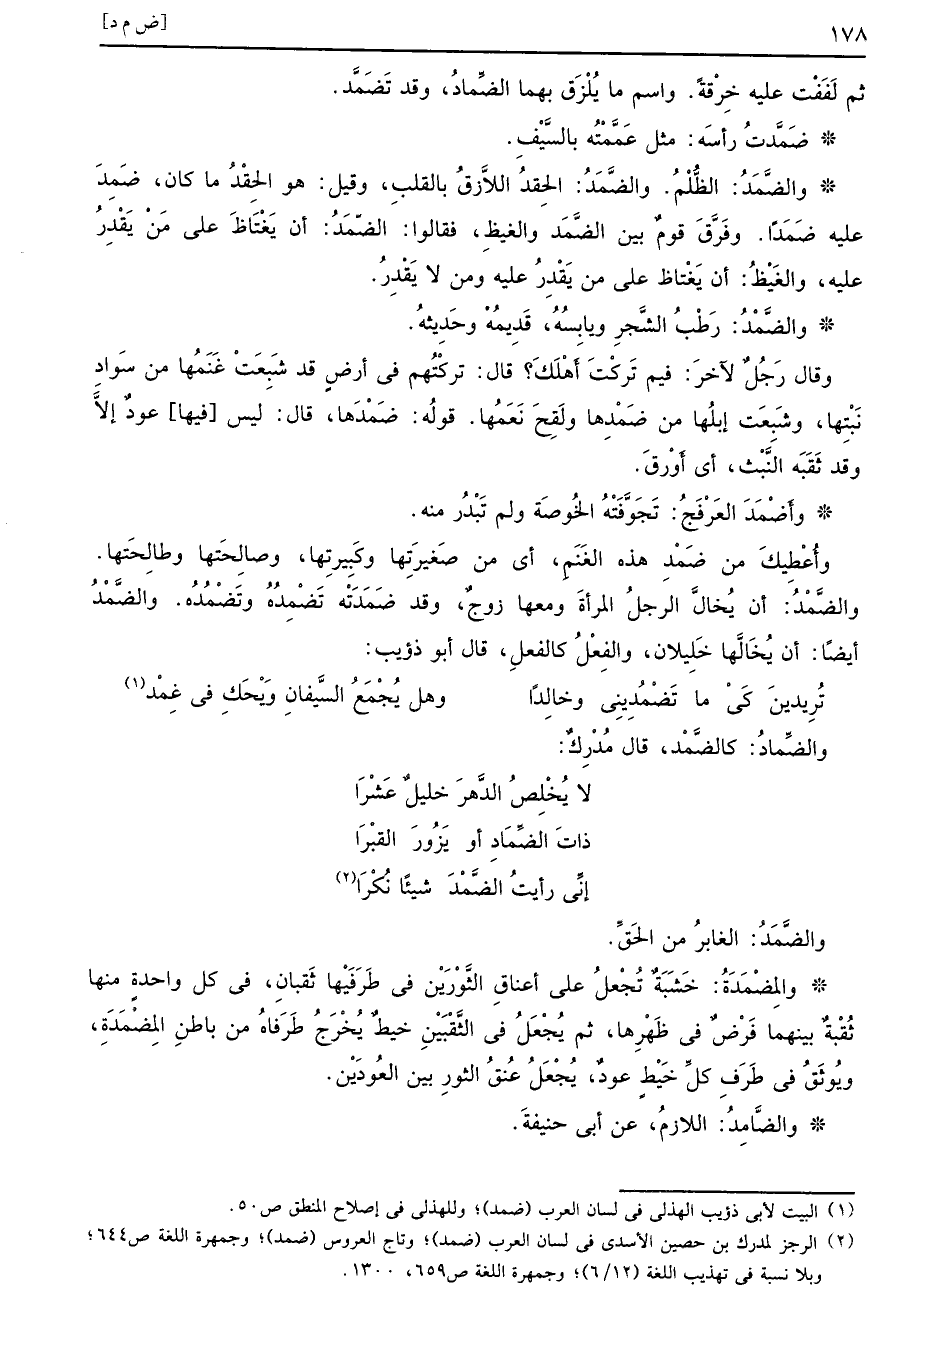 ١٧٨ [ض م د]
ثم لَفَفْت عليه خِرْقةً. واسم ما يُلْزَق بهما الضِّمادُ، وقد تَضَمَّد.
* ضَمَّدتُ رأسَه: مثل عَمَّمْتُه بالسَّيْفِ.
* والضَّمَدُ: الظُّلْمُ. والضَّمَدُ: الحِقدُ اللاَّزِقُ بالقلبِ، وقيل: هو الحِقْدُ ما كان، ضَمِدَ
عليه ضَمَدًا. وفَرَّقَ قومٌ بين الضَّمَد والغيظِ، فقالوا: الضّمَدُ: أن يَغْتاظَ على مَنْ يَقْدِرُ
عليه، والغَيْظُ: أن يَغْتاظ على من يَقْدِرُ عليه ومن لا يَقْدِرُ.
* والضَّمْدُ: رَطْبُ الشَّجرِ ويابِسُهُ، قَدِيمُهْ وحَدِيثهُ.
وقال رَجُلٌ لآخرَ: فيم تَركْتَ أهْلَكَ؟ قال: تركْتُهم فى أرضٍ قد شَبَعَتْ غَنَمُها من سَوادِ
نَبْتِها، وشَبَعَت إبلُها من ضَمْدِها ولَقِحَ نَعَمُها. قولُه: ضَمْدَها، قال: ليس [فيها] عودٌ إلاَّ
وقد ثَقَبَه النَّبْث، أى أَوْرقَ.
* وأَضْمَدَ العَرْفَجُ: تَجَوَّفَتْهُ الخُوصَة ولم تَبْدُر منه.
وأُعْطِيكَ من ضَمْدِ هذه الغَنَمِ، أى من صَغيرَتِها وكَبِيرتِها، وصالِحَتها وطالِحَتها.
والضَّمْدُ: أن يُخالَّ الرجلُ المرأةَ ومعها زوجٌ، وقد ضَمَدَتْه تَضْمِدُهُ وتَضْمُدُه. والضَّمْدُ
أيضًا: أن يُخَالَّها خَلِيلان، والفِعْلُ كالفعلِ، قال أبو ذؤيب:
تُرِيدينَ كَىْ ما تَضْمُدِينِى وخالِدًا وهل يُجْمَعُ السَّيفانِ وَيْحَكِ فى غِمْد(١)
والضِّمادُ: كالضَّمْد، قال مُدْرِكٌ:
لا يُخْلِصُ الدَّهرَ خليلٌ عَشْرَا
ذاتَ الضِّمَادِ أو يَزُورَ القبْرَا
إنِّى رأيتُ الضَّمْدَ شيئًا نُكْرَا(٢)
والضَّمَدُ: الغابرُ من الحَقِّ.
* والمِضْمَدَةُ: خَشَبَةٌ تُجْعلُ على أعناقِ الثَّوْرَيْن فى طَرَفَيْها ثَقبان، فى كل واحدةٍ منها
ثُقْبةٌ بينهما فَرْضٌ فى ظَهْرِها، ثم يُجْعَلُ فى الثَّقْبَيْنِ خيطٌ يُخْرَجُ طَرَفاهُ من باطنِ المِضْمَدَةِ،
ويُوثَقُ فى طَرَفِ كلِّ خَيْطٍ عودٌ، يُجْعَلُ عُنقُ الثورِ بين العُودَيْن.
* والضَّامِدُ: اللازمُ، عن أبى حنيفةَ.
(١) البيت لأبى ذؤيب الهذلى فى لسان العرب (ضمد)؛ وللهذلى فى إصلاح المنطق ص٥٠.
(٢) الرجز لمدرك بن حصين الأسدى فى لسان العرب (ضمد)؛ وتاج العروس (ضمد)؛ وجمهرة اللغة ص٦٤٤؛
وبلا نسبة فى تهذيب اللغة (٦/١٢)؛ وجمهرة اللغة ص٦٥٩، ١٣٠٠.